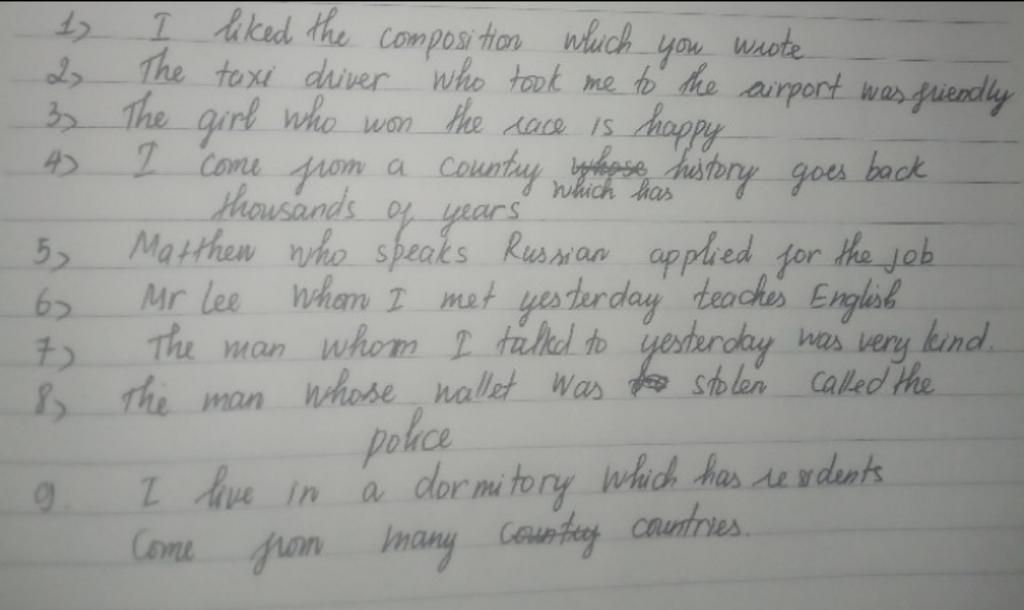 1) I liked the composition which you wrote
2) The taxi driver who took me to the airport was friendly
3) The girl who won the race is happy
4) I come from a country whose history goes back
which has
thousands of years
5) Matthew who speaks Russian applied for the job
6) Mr Lee whom I met yesterday teaches English
7) The man whom I talkd to yesterday was very kind.
8) The man whose wallet was stolen called the
police
9. I live in a dormitory which has residents
Come from many country countries.